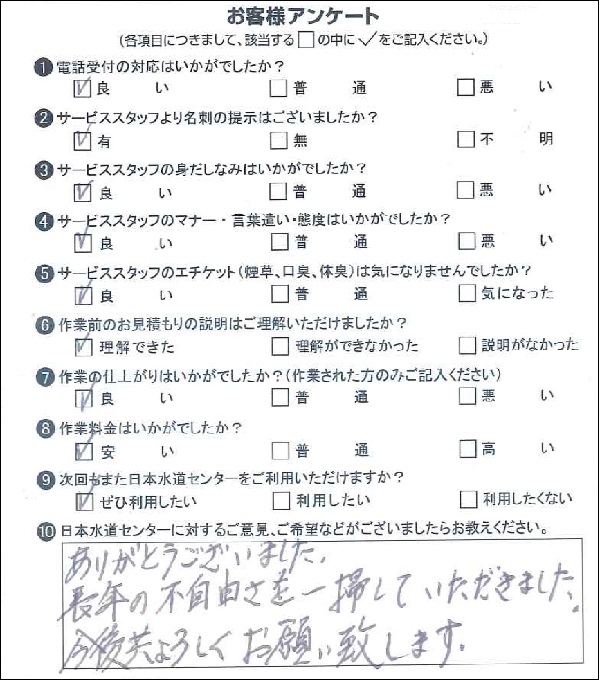 お客様アンケート
(各項目につきまして、該当する□の中に✓をご記入ください。)
❶電話受付の対応はいかがでしたか?
☑良い □普通 □悪い
❷サービススタッフより名刺の提示はございましたか?
☑有 □無 □不明
❸サービススタッフの身だしなみはいかがでしたか?
☑良い □普通 □悪い
❹サービススタッフのマナー・言葉遣い・態度はいかがでしたか?
☑良い □普通 □悪い
❺サービススタッフのエチケット(煙草、口臭、体臭)は気になりませんでしたか?
☑良い □普通 □気になった
❻作業前のお見積もりの説明はご理解いただけましたか?
☑理解できた □理解ができなかった □説明がなかった
❼作業の仕上がりはいかがでしたか?(作業された方のみご記入ください)
☑良い □普通 □悪い
❽作業料金はいかがでしたか?
☑安い □普通 □高い
❾次回もまた日本水道センターをご利用いただけますか?
☑ぜひ利用したい □利用したい □利用したくない
❿日本水道センターに対するご意見、ご希望などがございましたらお教えください。
ありがとうございました。
長年の不自由さを一掃していただきました。
今後共よろしくお願い致します。